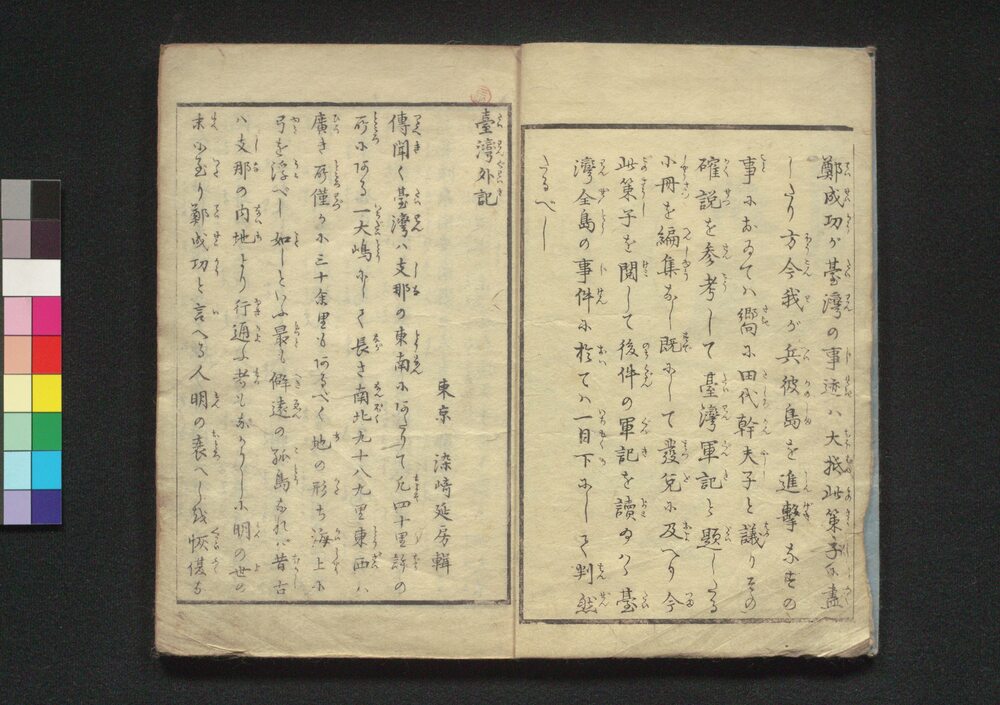 鄭成功が臺灣の事迹ハ大抵此策子に盡
したり方今我が兵彼島を進撃なすの
事におゐてハ嚮に田代幹夫子と議りその
確説を参考して臺灣軍記と題したる
小冊を編集なし既にして發兌に及べり今
此策子を閲して後件の軍記を讀ゐハ臺
灣全島の事件に於てハ一目下にして判然
たるべし
臺灣外記
東京 染﨑延房輯
傳聞く臺灣ハ支那の東南にあたりて凡四十里許の
所にある一大嶋にして長さ南北九十八九里東西ハ
廣き所僅かに三十余里もあるべく地の形ち海上に
弓を浮べし如しといふ最も僻遠の孤島なれバ昔古
ハ支那の内地より行通ふ者もなかりしに明の世の
末に至り鄭成功と言へる人明の衰へしを恢復